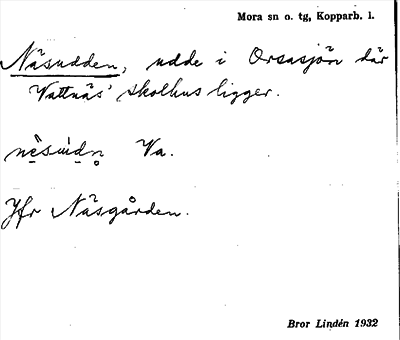 Mora sn o. tg, Kopparb. l.
Näsudden, udde i Orsasjön där
Vattnäs' skolhus ligger.
Va.
Jfr Näsgården.
Bror Lindén 1932